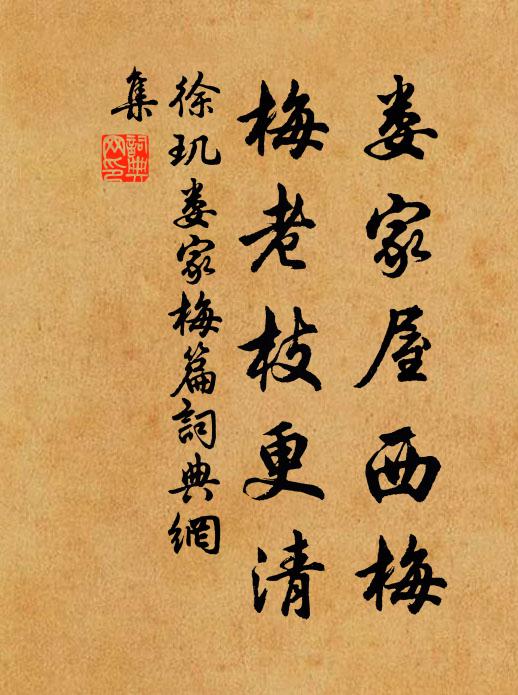 娄家屋西梅
梅老枝更清
徐玑娄家梅篇詞典網
集
詞典網印